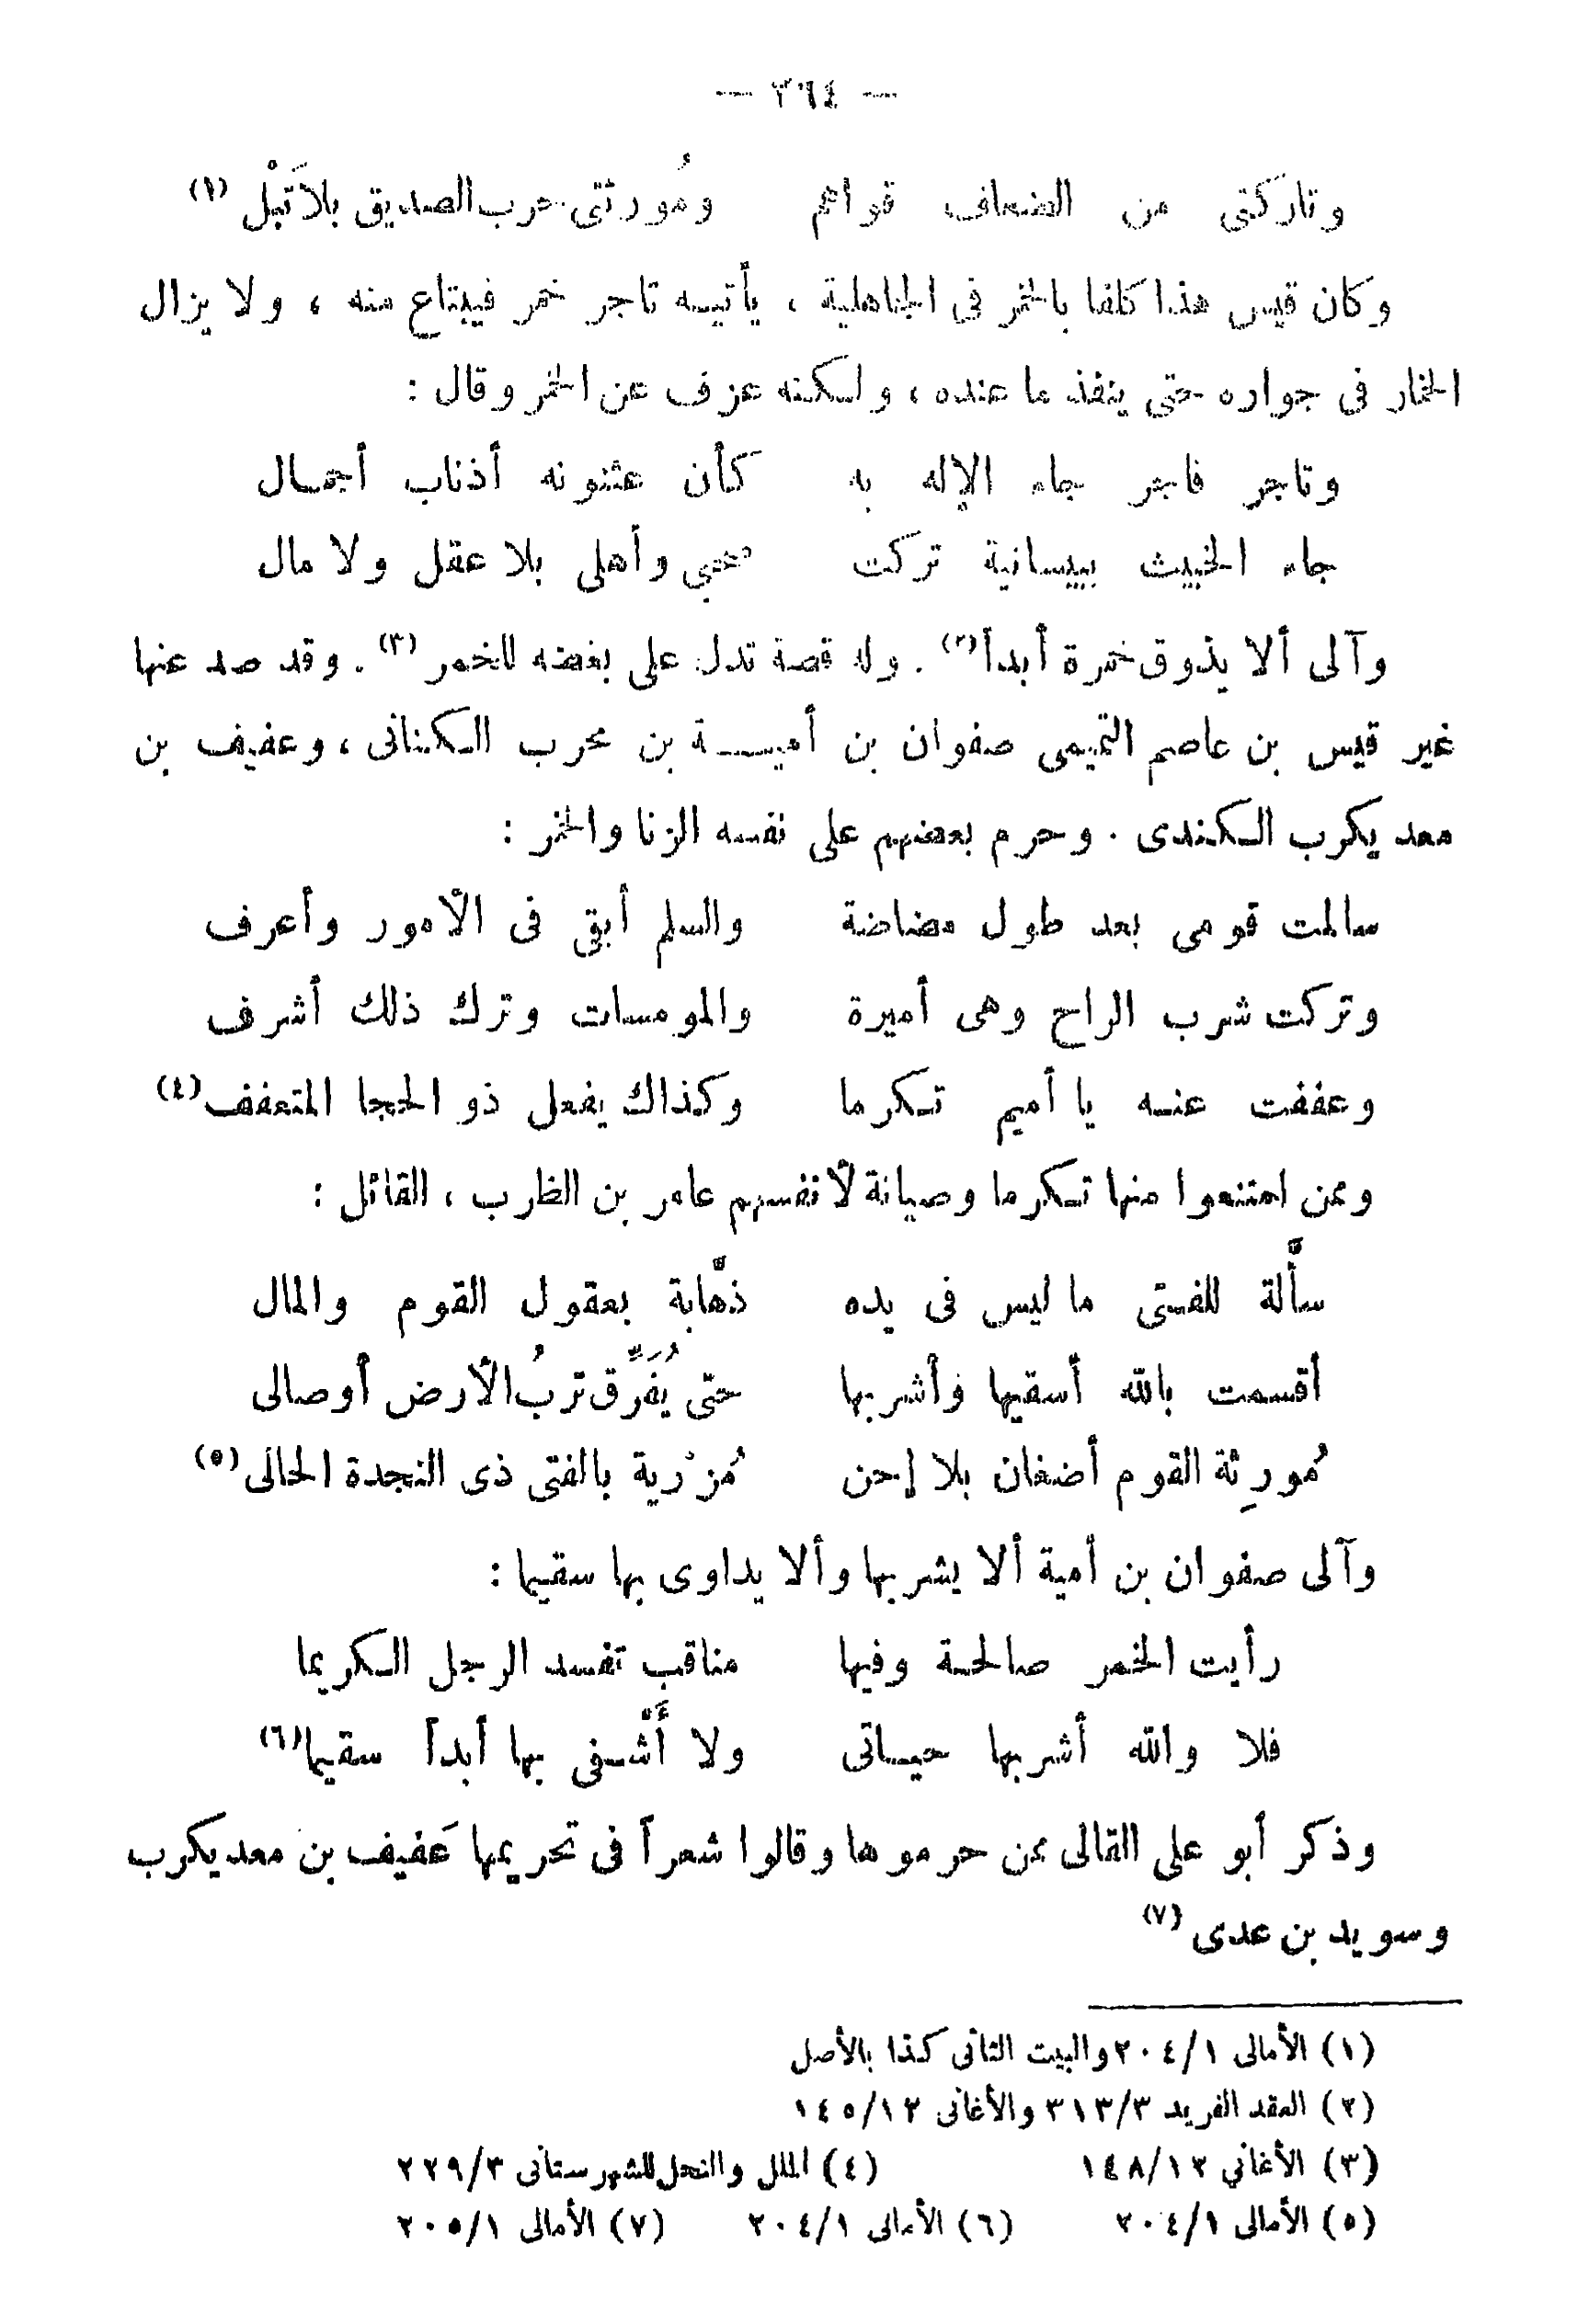 — ٣٦٤ —
وتاركتى من الضعاف قواهم ومُورثتى حرب الصديق بلا تَبْل (١)
وكان قيس هذا كلفا بالخمر فى الجاهلية ، يأتيه تاجر خمر فيبتاع منه ، ولا يزال
الخمار فى جواره حتى ينفذ ما عنده ، ولكنه عزف عن الخمر وقال :
وتاجر فاجر جاء الإله به كأن عثنونه أذناب أجمال
جاء الخبيث ببيسانية تركت صحبي وأهلى بلا عقل ولا مال
وآلى ألا يذوق خمرة أبداً (٢) . وله قصة تدل على بغضه للخمر (٣) . وقد صد عنها
غير قيس بن عاصم التميمى صفوان بن أمية بن محرب الكنانى ، وعفيف بن
معد يكرب الكندى . وحرم بعضهم على نفسه الزنا والخمر :
سالمت قومى بعد طول مضاضة والسلم أبقى فى الأمور وأعرف
وتركت شرب الراح وهى أميرة والمومسات وترك ذلك أشرف
وعففت عنه يا أميم تكرما وكذاك يفعل ذو الحجا المتعفف (٤)
وممن امتنعوا منها تكرما وصيانة لأنفسهم عامر بن الظرب ، القائل :
سأَّلة للفتى ما ليس فى يده ذهَّابة بعقول القوم والمال
أقسمت بالله أسقيها وأشربها حتى يُفَرِّق تربُ الأرض أوصالى
مُورِثة القوم أضغان بلا إحن مُزْرية بالفتى ذى النجدة الحالى (٥)
وآلى صفوان بن أمية ألا يشربها وألا يداوى بها سقيما :
رأيت الخمر صالحة وفيها مناقب تفسد الرجل الكريما
فلا والله أشربها حياتى ولا أَشْفى بها أبداً سقيما (٦)
وذكر أبو على القالى ممن حرموها وقالوا شعراً فى تحريمها عَفيف بن معد يكرب
وسويد بن عدى (٧)
(١) الأمالى ٢٠٤/١ والبيت الثانى كذا بالأصل
(٢) العقد الفريد ٣١٣/٣ والأغانى ١٤٥/١٢
(٣) الأغاني ١٤٨/١٢ (٤) الملل والنحل للشهرستانى ٢٢٩/٣
(٥) الأمالى ٢٠٤/١ (٦) الأمالى ٢٠٤/١ (٧) الأمالى ٢٠٥/١